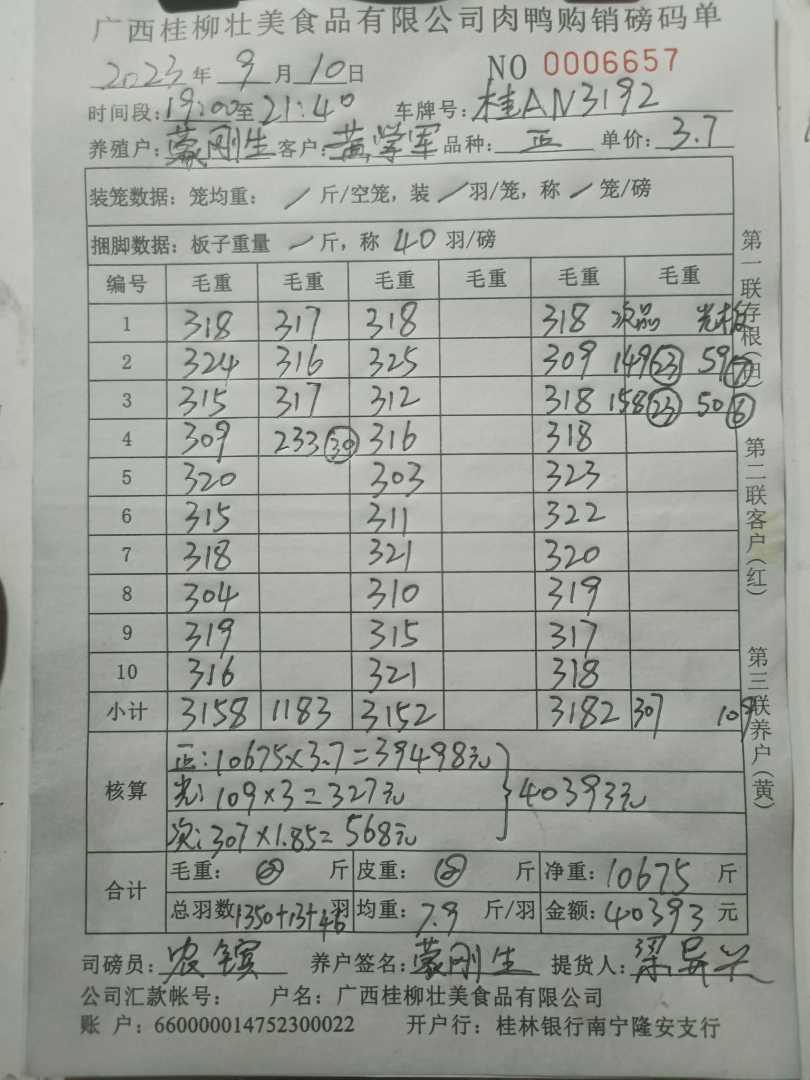 广西桂柳壮美食品有限公司肉鸭购销磅码单
2023年 9月 10日 NO 0006657
时间段:19:00至21:40 车牌号:桂AN3192
养殖户:蒙刚生 客户:黄学军 品种:正 单价:3.7
装笼数据:笼均重: / 斤/空笼,装 / 羽/笼,称 / 笼/磅
捆脚数据:板子重量 / 斤,称 40 羽/磅
编号 毛重 毛重 毛重 毛重 毛重
1 318 317 318 318 次品 光板
2 324 316 325 309 149(23) 59(7)
3 315 317 312 318 158(23) 50(6)
4 309 233(30) 316 318
5 320 303 323
6 315 311 322
7 318 321 320
8 304 310 319
9 319 315 317
10 316 321 318
小计 3158 1183 3152 3182 307 109
核算
正:10675×3.7=39498元
光:109×3=327元 }40393元
次:307×1.85=568元
合计
毛重: 斤 皮重: 斤 净重:10675 斤
总羽数1350+13+46羽 均重:7.9 斤/羽 金额:40393 元
司磅员:农镔 养户签名:蒙刚生 提货人:梁
公司汇款帐号: 户名:广西桂柳壮美食品有限公司
账 户:660000014752300022 开户行:桂林银行南宁隆安支行
第一联存根(白)
第二联客户(红)
第三联养户(黄)